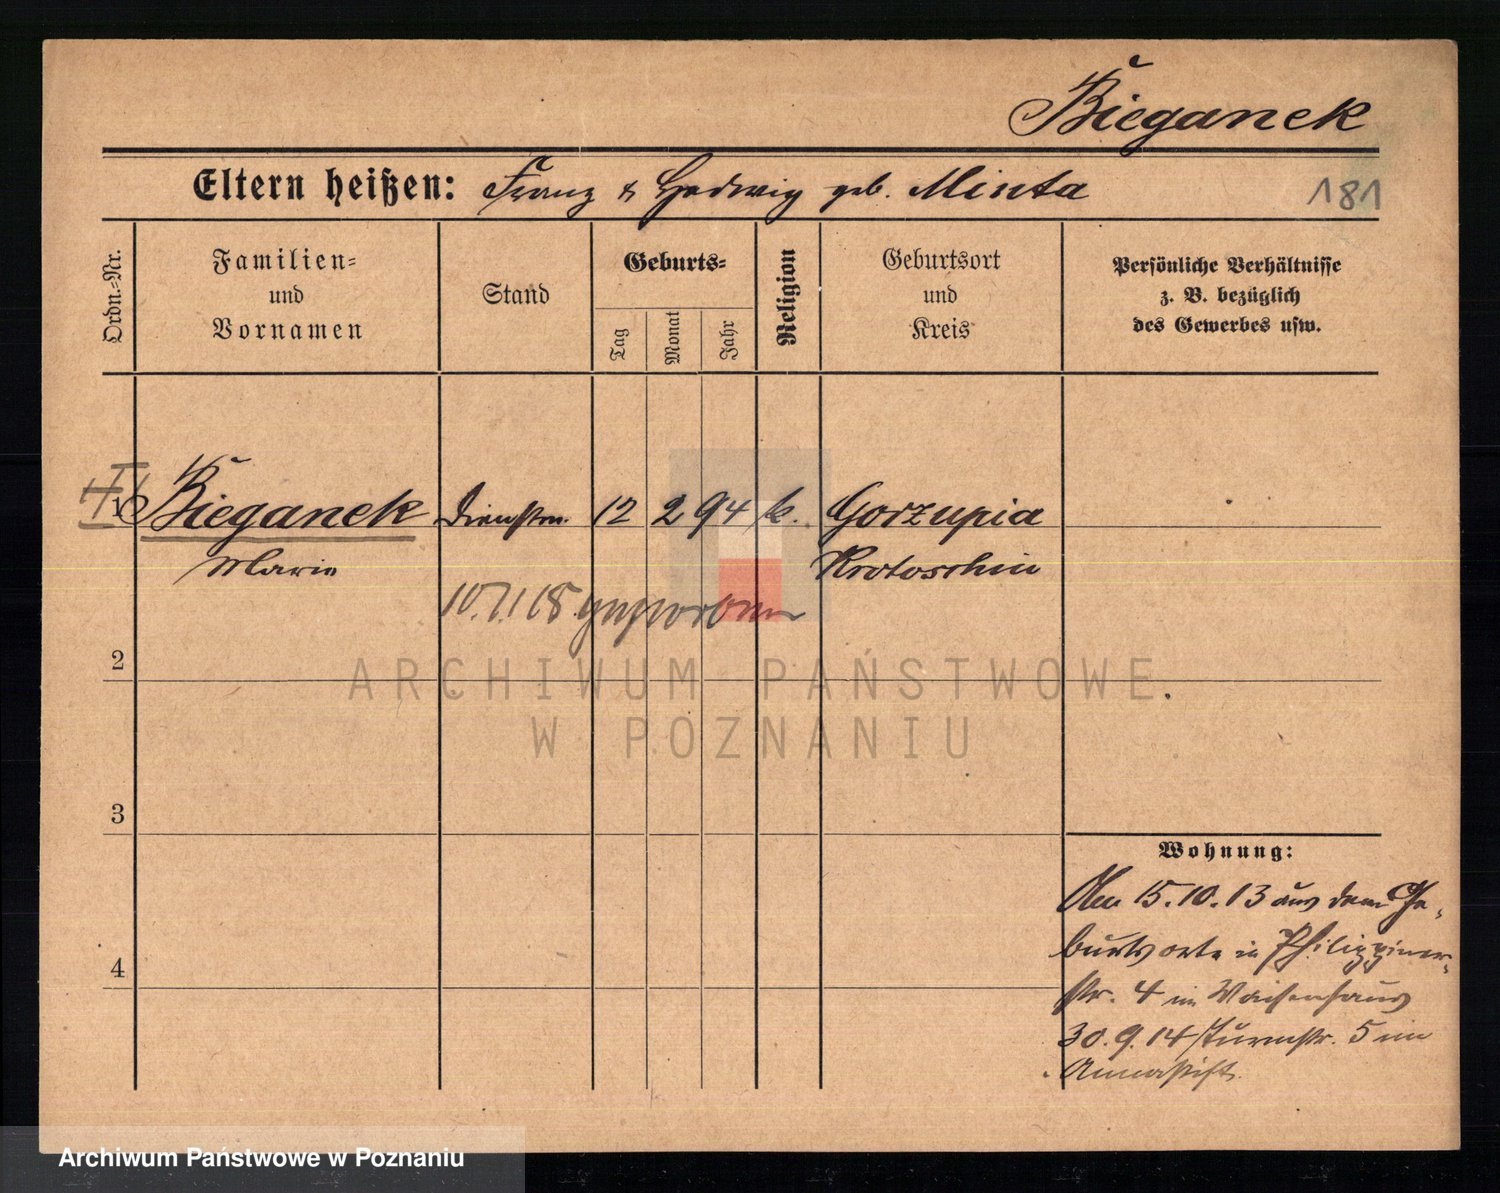 Bieganek
Eltern heißen: Franz & Hedwig geb. Minta
181
Ordn.-Nr.
Familien-
und
Vornamen
Stand
Geburts-
Tag
Monat
Jahr
Religion
Geburtsort
und
Kreis
Persönliche Verhältnisse
z. B. bezüglich
des Gewerbes usw.
1 Bieganek Dienstm. 12 2 94 k. Gorzupia
Marie Krotoschin
10.7.18 gestorben
2
3
4
Wohnung:
Am 15.10.13 aus dem Ge-
burtsorte in Philippiner-
str. 4 im Waisenhaus
30.9.14 Turmstr. 5 im
Annastift.
ARCHIWUM PAŃSTWOWE
W POZNANIU
Archiwum Państwowe w Poznaniu